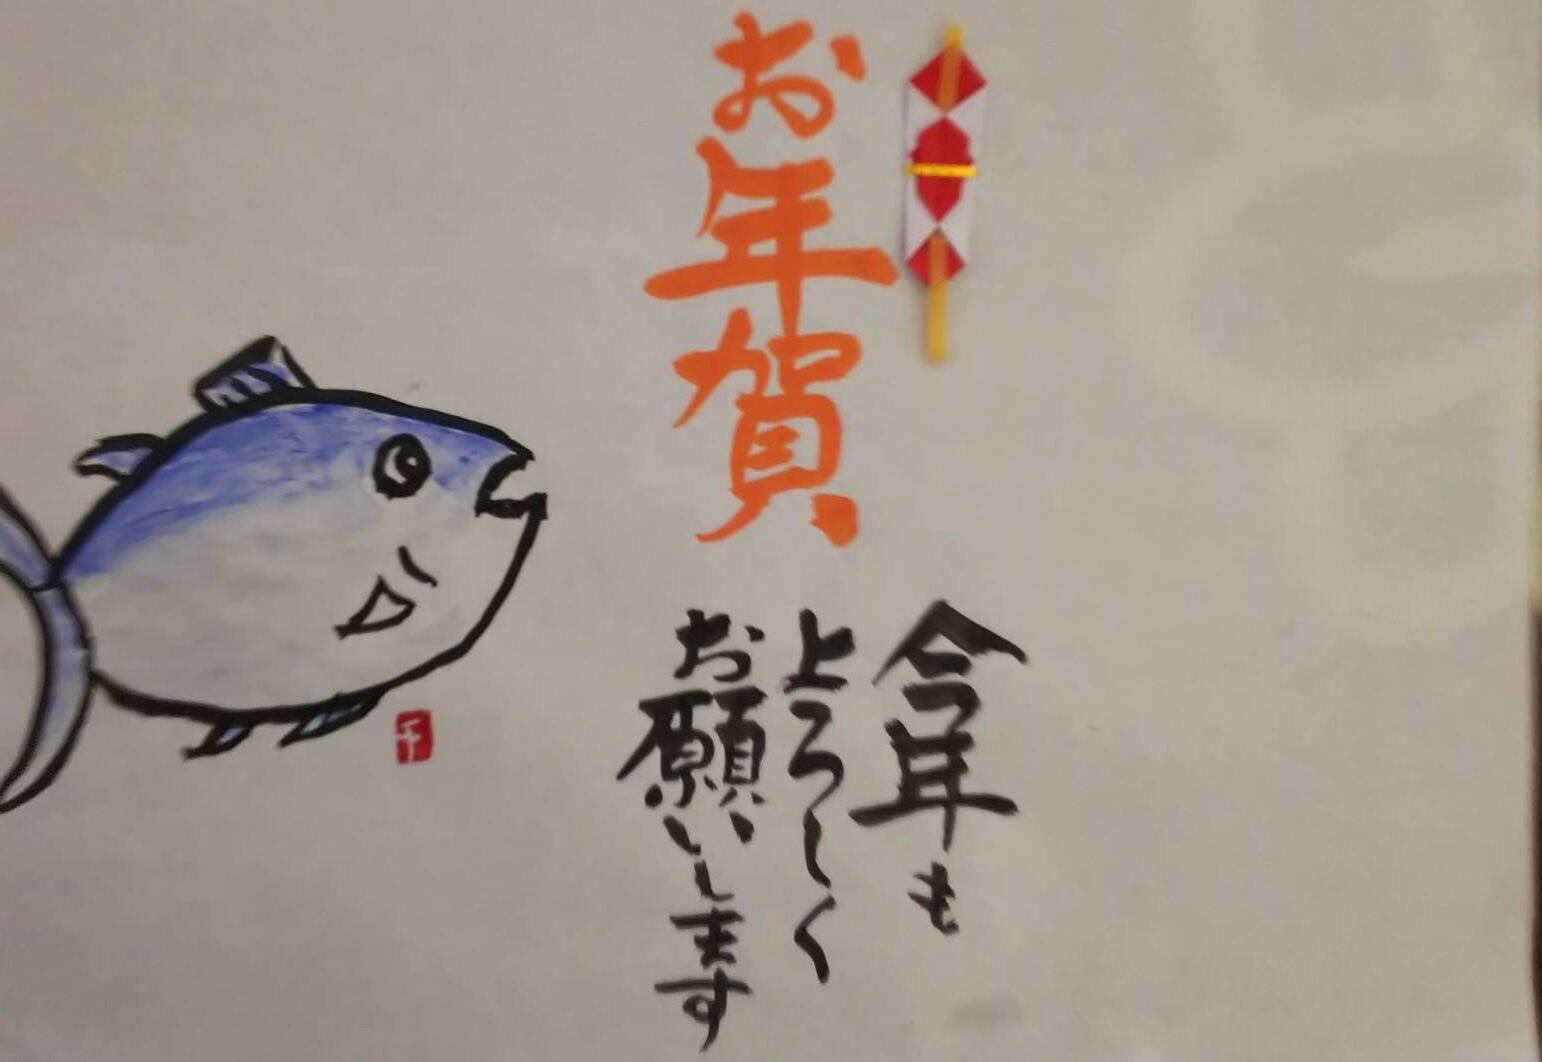 お年賀
今年も
よろしく
お願いします
千